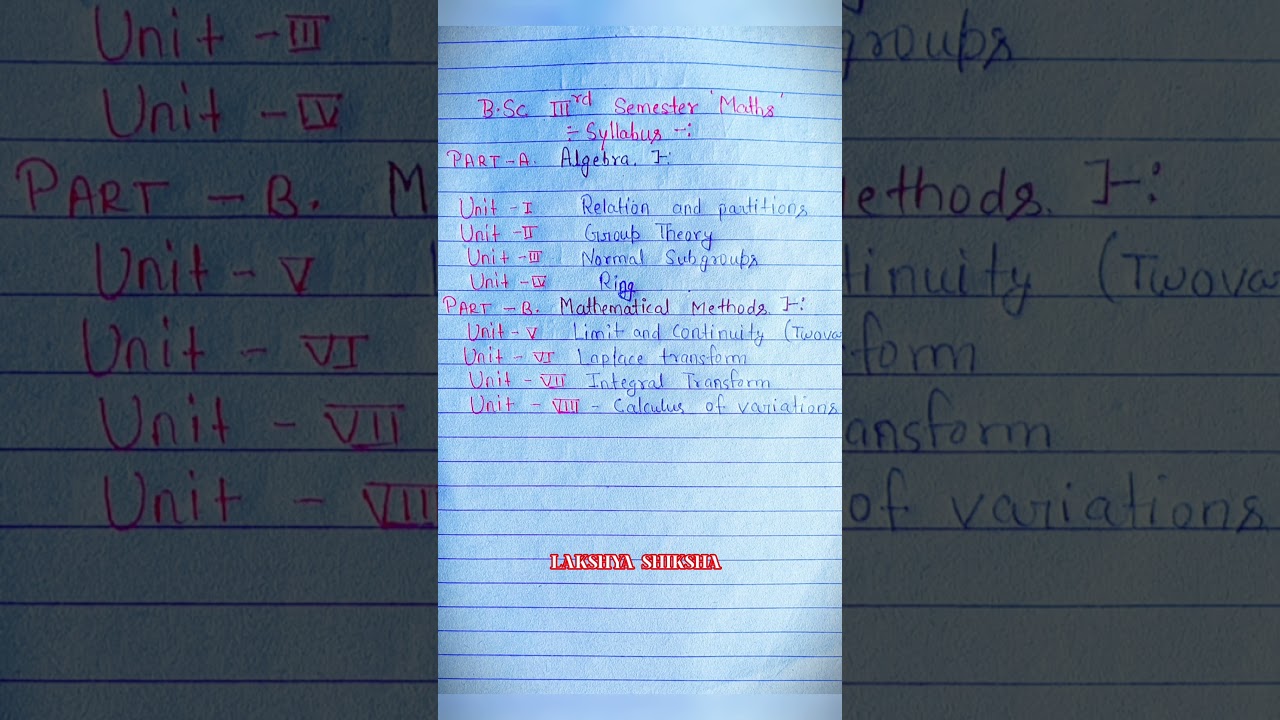 B.Sc IIIrd Semester 'Maths'
:- Syllabus -:
PART-A. Algebra. }-:
Unit -I Relation and partitions
Unit -II Group Theory
Unit -III Normal Subgroups
Unit -IV Ring
PART -B. Mathematical Methods. }-:
Unit - V Limit and Continuity (Twova
Unit - VI Laplace transform
Unit - VII Integral Transform
Unit - VIII - Calculus of variations
LAKSHYA SHIKSHA